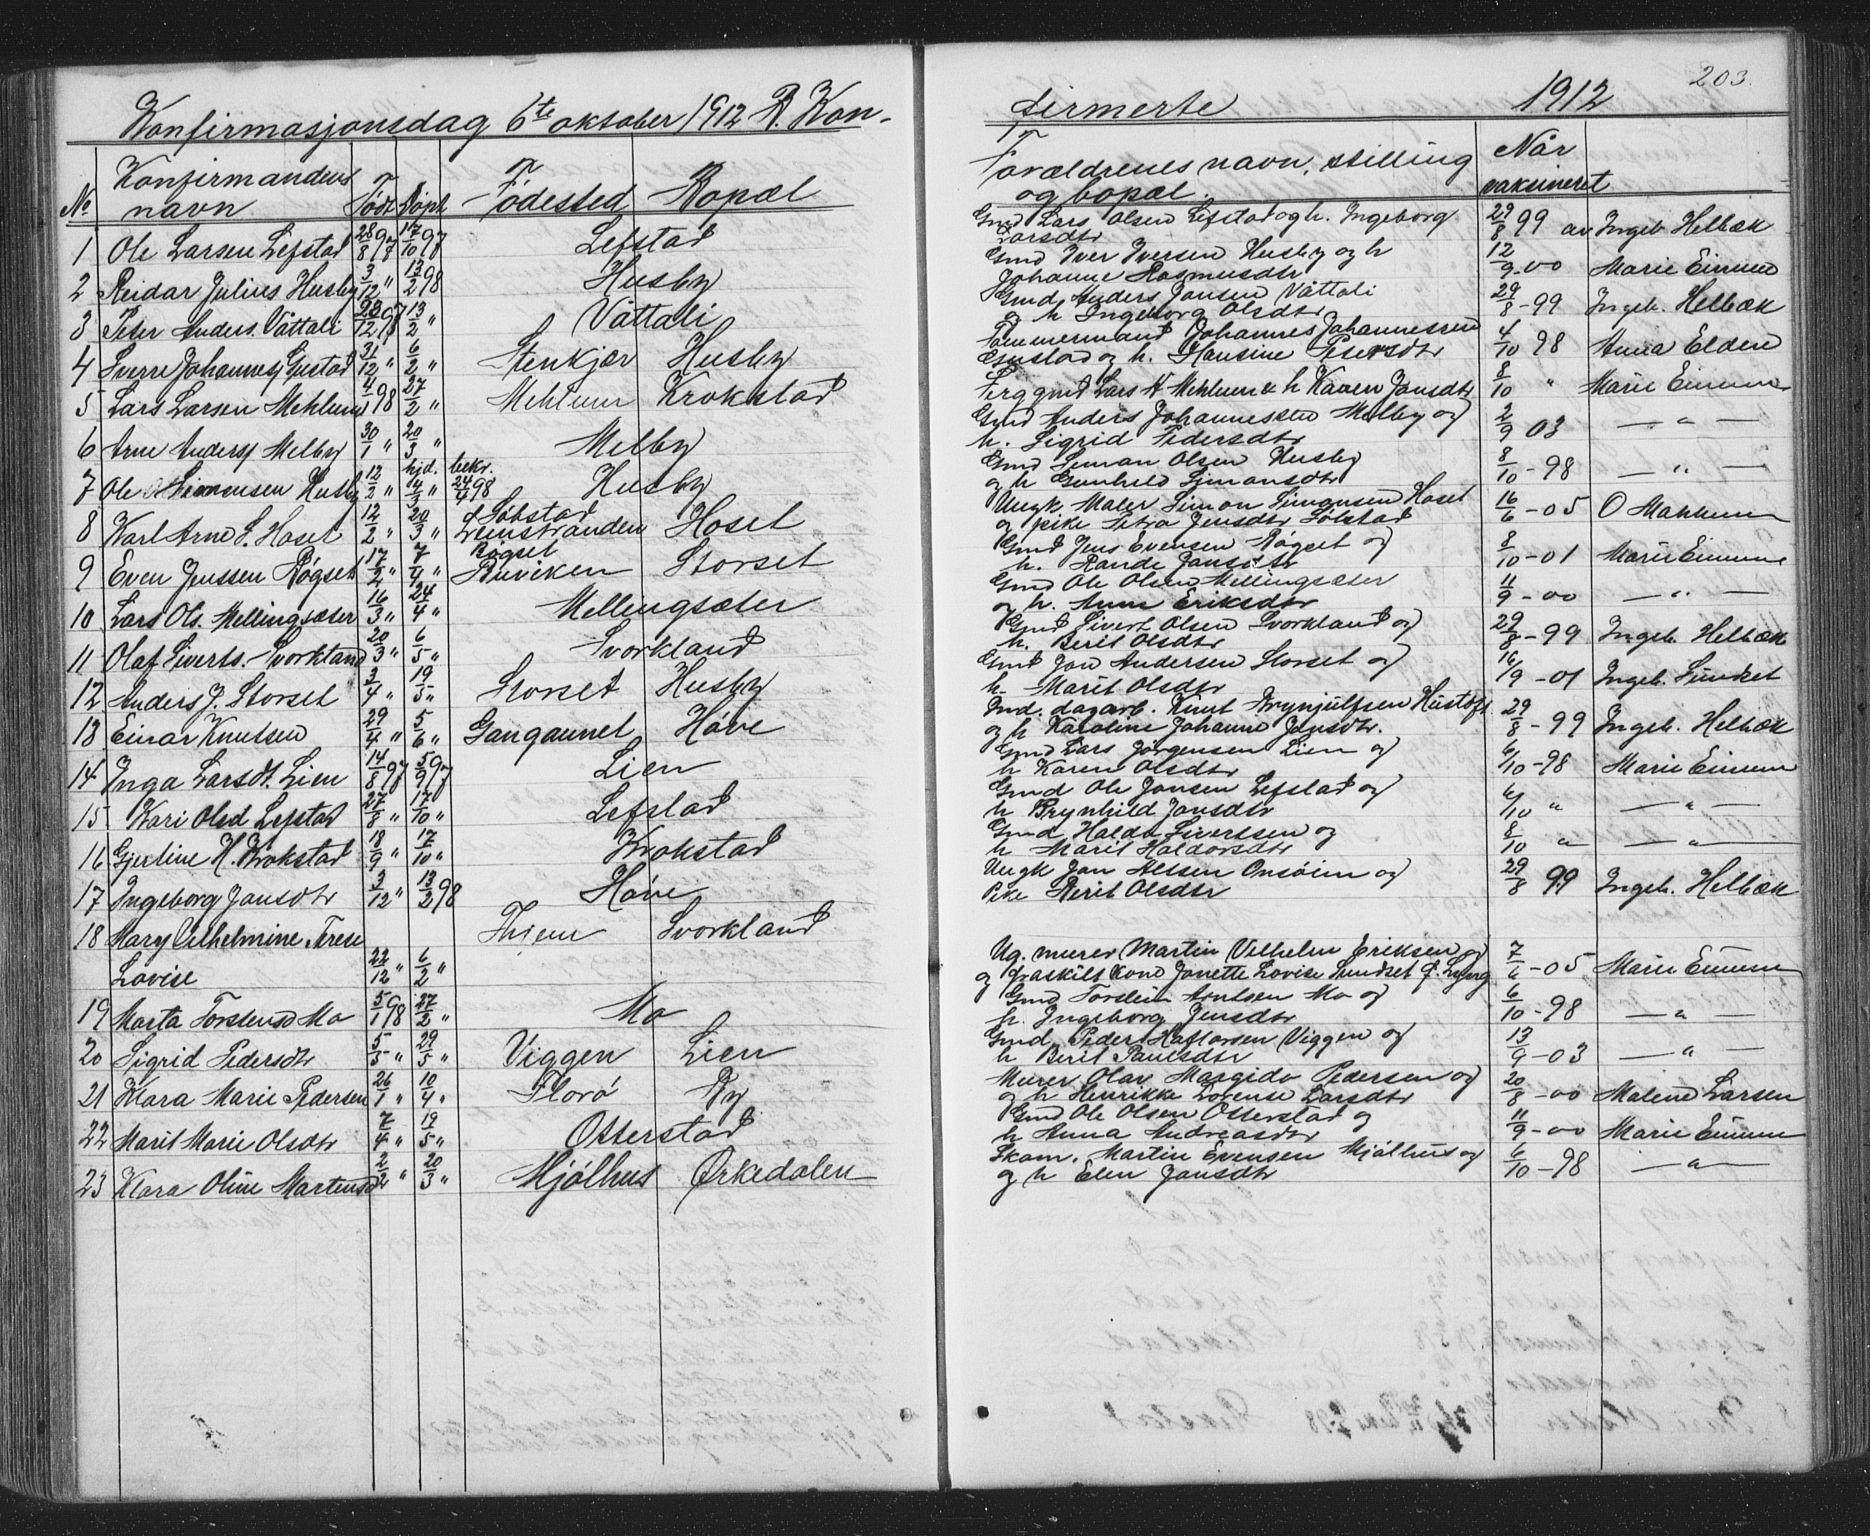 203.
Konfirmasjonsdag 6te oktober 1912 B. Kon-
firmerte 1912
No Konfirmandens navn Født Døpt Fødested Bopæl
Forældrenes navn, stilling og bopæl. Når vaksineret
1 Ole Larsen Lefstad 28/8 97 17/10 97 Lefstad
Gmd Lars Olsen Lefstad og h. Ingeborg Larsdtr 29/8 99 av Ingeb. Helbæk
2 Reidar Julius Husby 3/12 " 13/2 98 Husby
Gmd Iver Iversen Husby og h Johanne Rasmusdtr 12/9-00 Marie Eimem
3 Peter Anders. Våttali 29/12 97 13/2 " Våttali
Gmd. Anders Jansen Våttali og h Ingeborg Olsdtr 29/8-99 Ingeb. Helbæk
4 Sverre Johannesj Gustad 31/12 " 6/2 " Stenkjær Husby
Tømmermand Johannes Johannessen Gustad og h. Hansine Petersdtr 4/10 98 Anna Elden
5 Lars Larsen Mehlum 4/1 98 27/2 " Mehlum Krokstad
Lars Mehlum & h Karen Jansdtr 8/10 " Marie Eimem
6 Arne Andersj Melby 30/1 " 20/3 " Melby
Gmd Anders Johannessen Melby og h. Sigrid Pedersdtr 2/9 03 — " —
7 Ole Simonsen Husby 12/2 " hjd. 14/3 " bekr. 24/4 98 Husby
Gmd Simon Olsen Husby og h Gunhild Simonsdtr 8/10-98 — " —
8 Karl Arne S. Hoset 12/2 " 20/3 " Sølstad Leinstranden Hoset
Ungk. Maler Simon Simonsen Hoset og pike Petra Jensdtr Sølstad 16/6-05 O Mahlum
9 Even Jenssen Røgset 17/2 " 7/4 " Røgset Buviken Storset
Gmd Jens Evensen Røgset og h. Rande Jansdtr 8/10-01 Marie Eimem
10 Lars Ols. Mellingsæter 16/3 " 24/4 " Mellingsæter
Gmd Ole Olsen Mellingsæter og h. Anne Eriksdtr 11/9-00 — " —
11 Olaf Siverts. Svorkland 20/3 " 6/5 " Svorkland
Gmd Sivert Olsen Svorkland og h. Berit Olsdtr 29/8-99 Ingeb. Helbæk
12 Anders J. Storset 3/4 " 19/5 " Storset Husby
Gmd Jon Andersen Storset og h. Marit Olsdtr 16/9-01 Ingeb. Sundset
13 Einar Knutsen 29/4 " 5/6 " Gangaunet Høve
Ind. dagarb. Knut Brynjulfsen Hustoft og h Karoline Johanne Jansdtr. 29/8-99 Ingeb. Helbæk
14 Inga Larsdt. Lien 14/8 97 5/9 97 Lien
Gmd Lars Jørgensen Lien og h Karen Olsdtr 6/10-98 Marie Eimem
15 Kari Olsd Lefstad 27/8 " 17/10 " Lefstad
Gmd Ole Jansen Lefstad og h Brynhild Jansdtr 6/10 " — " —
16 Gjertine H. Krokstad 18/9 " 17/10 " Krokstad
Gmd Haldo Sivertsen og h Marit Haldorsdtr 8/10 " — " —
17 Ingeborg Jansdtr 3/12 " 13/2 98 Høve
Ungk Jan Olsen Onsøien og Pike Berit Olsdtr 29/8 99 Ingeb. Helbæk
18 Mary Vilhelmine Terese Lovise 22/12 " 6/2 " Thjem Svorkland
Ug. murer Martin Vilhelm Eriksen og fraskilt kone Janette Lovise Sundset 7/6-05 Marie Eimem
19 Marta Torstensd Mo 5/1 98 27/2 " Mo
Gmd Torstein Arntsen Mo og h. Ingeborg Jensdtr 6/10-98 — " —
20 Sigrid Pedersdtr 5/5 " 29/5 " Viggen Lien
Gmd. Peder Haftorsen Viggen og h Berit Paulsdtr 13/9-03 — " —
21 Klara Marie Pedersen 26/1 " 10/4 " Florø Ry
Murer Olav Margido Pedersen og og h Henrikke Lorense Larsdtr 20/8-00 Malene Larsen
22 Marit Marie Olsdtr 7/4 " 19/5 " Otterstad
Gmd Ole Olsen Otterstad og h Anna Andreasdtr 11/9-00 Marie Eimem
23 Klara Oline Martensd 2/2 " 20/3 " Mjølhus Ørkedalen
Skom. Martin Evensen Mjølhus og og h Elen Jansdtr 6/10-98 — " —